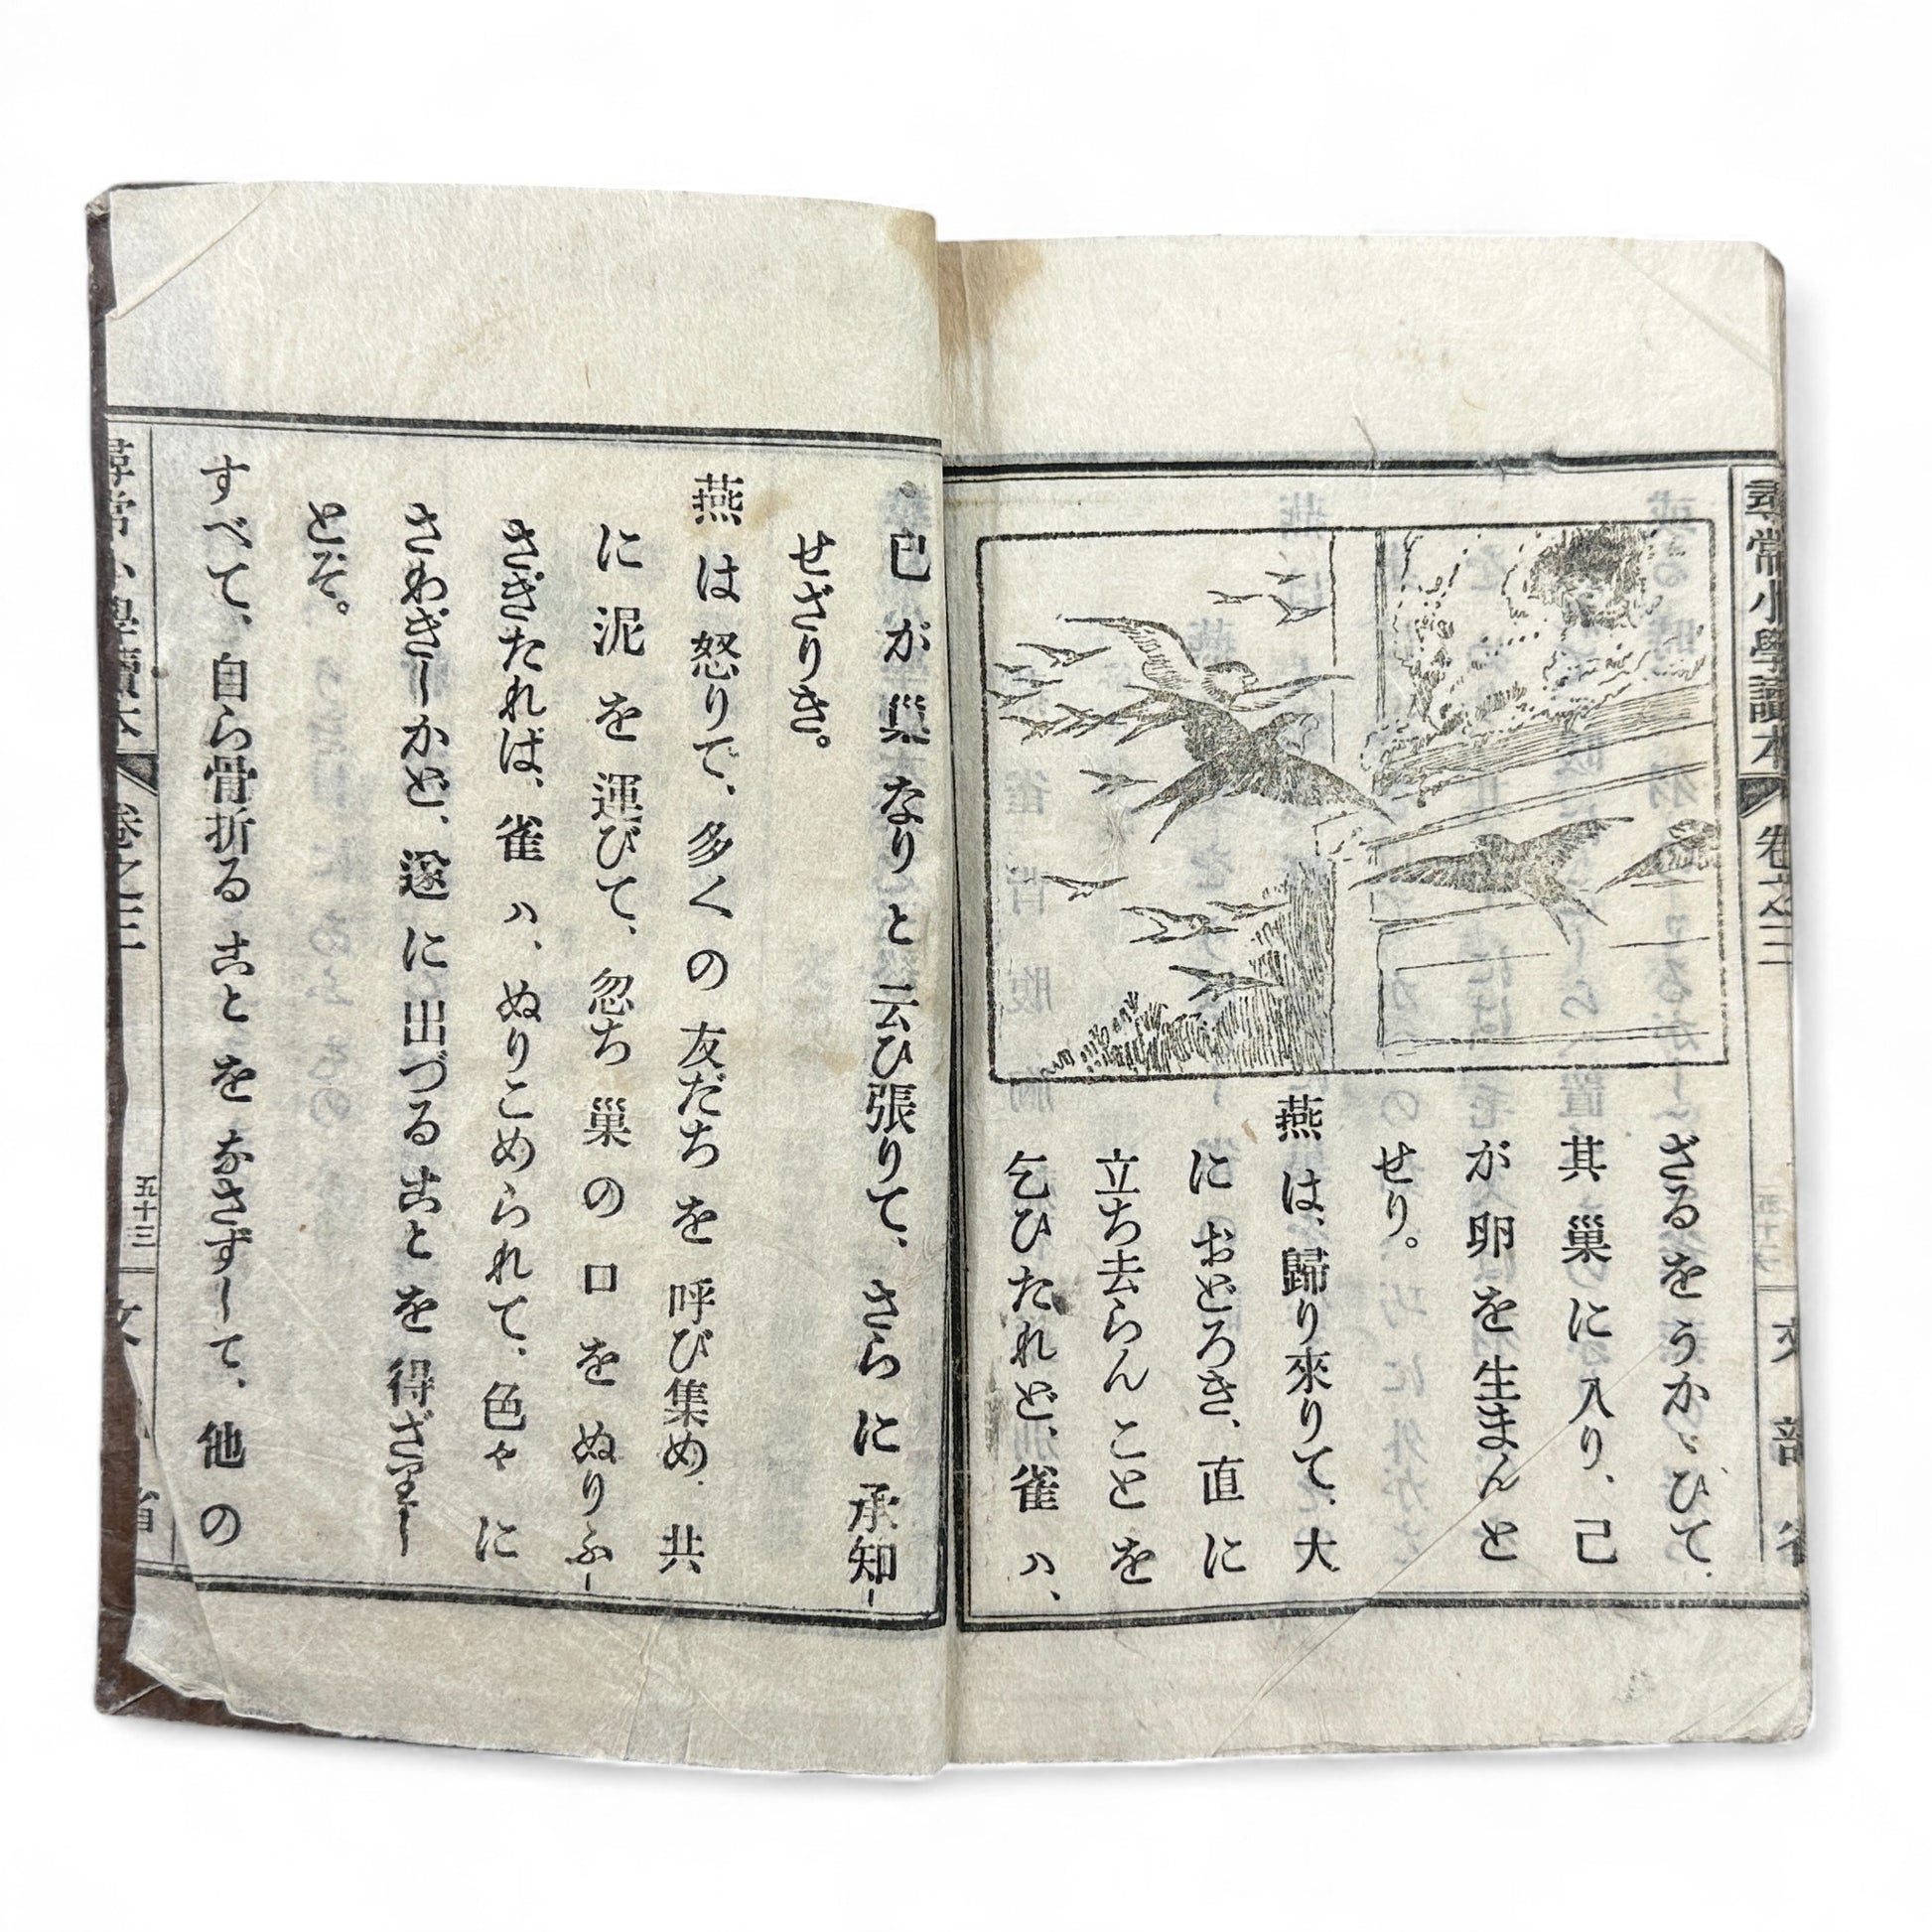 尋常小學讀本
卷之三
文部省
ざるをうかゞひて、
其巢に入り、己
が卵を生まんと
せり。
燕は、歸り來りて、大
におどろき、直に
立ち去らんことを
乞ひたれど、雀ハ、
己が巢なりと云ひ張りて、さらに承知し
せざりき。
燕は怒りて、多くの友だちを呼び集め、共
に泥を運びて、忽ち巢の口をぬりふし
さぎたれば、雀ハ、ぬりこめられて、色々に
さわぎしかど、遂に出づることを得ざりし
とぞ。
すべて、自ら骨折ることをなさずして、他の
尋常小學讀本
卷之三
五十三
文
省